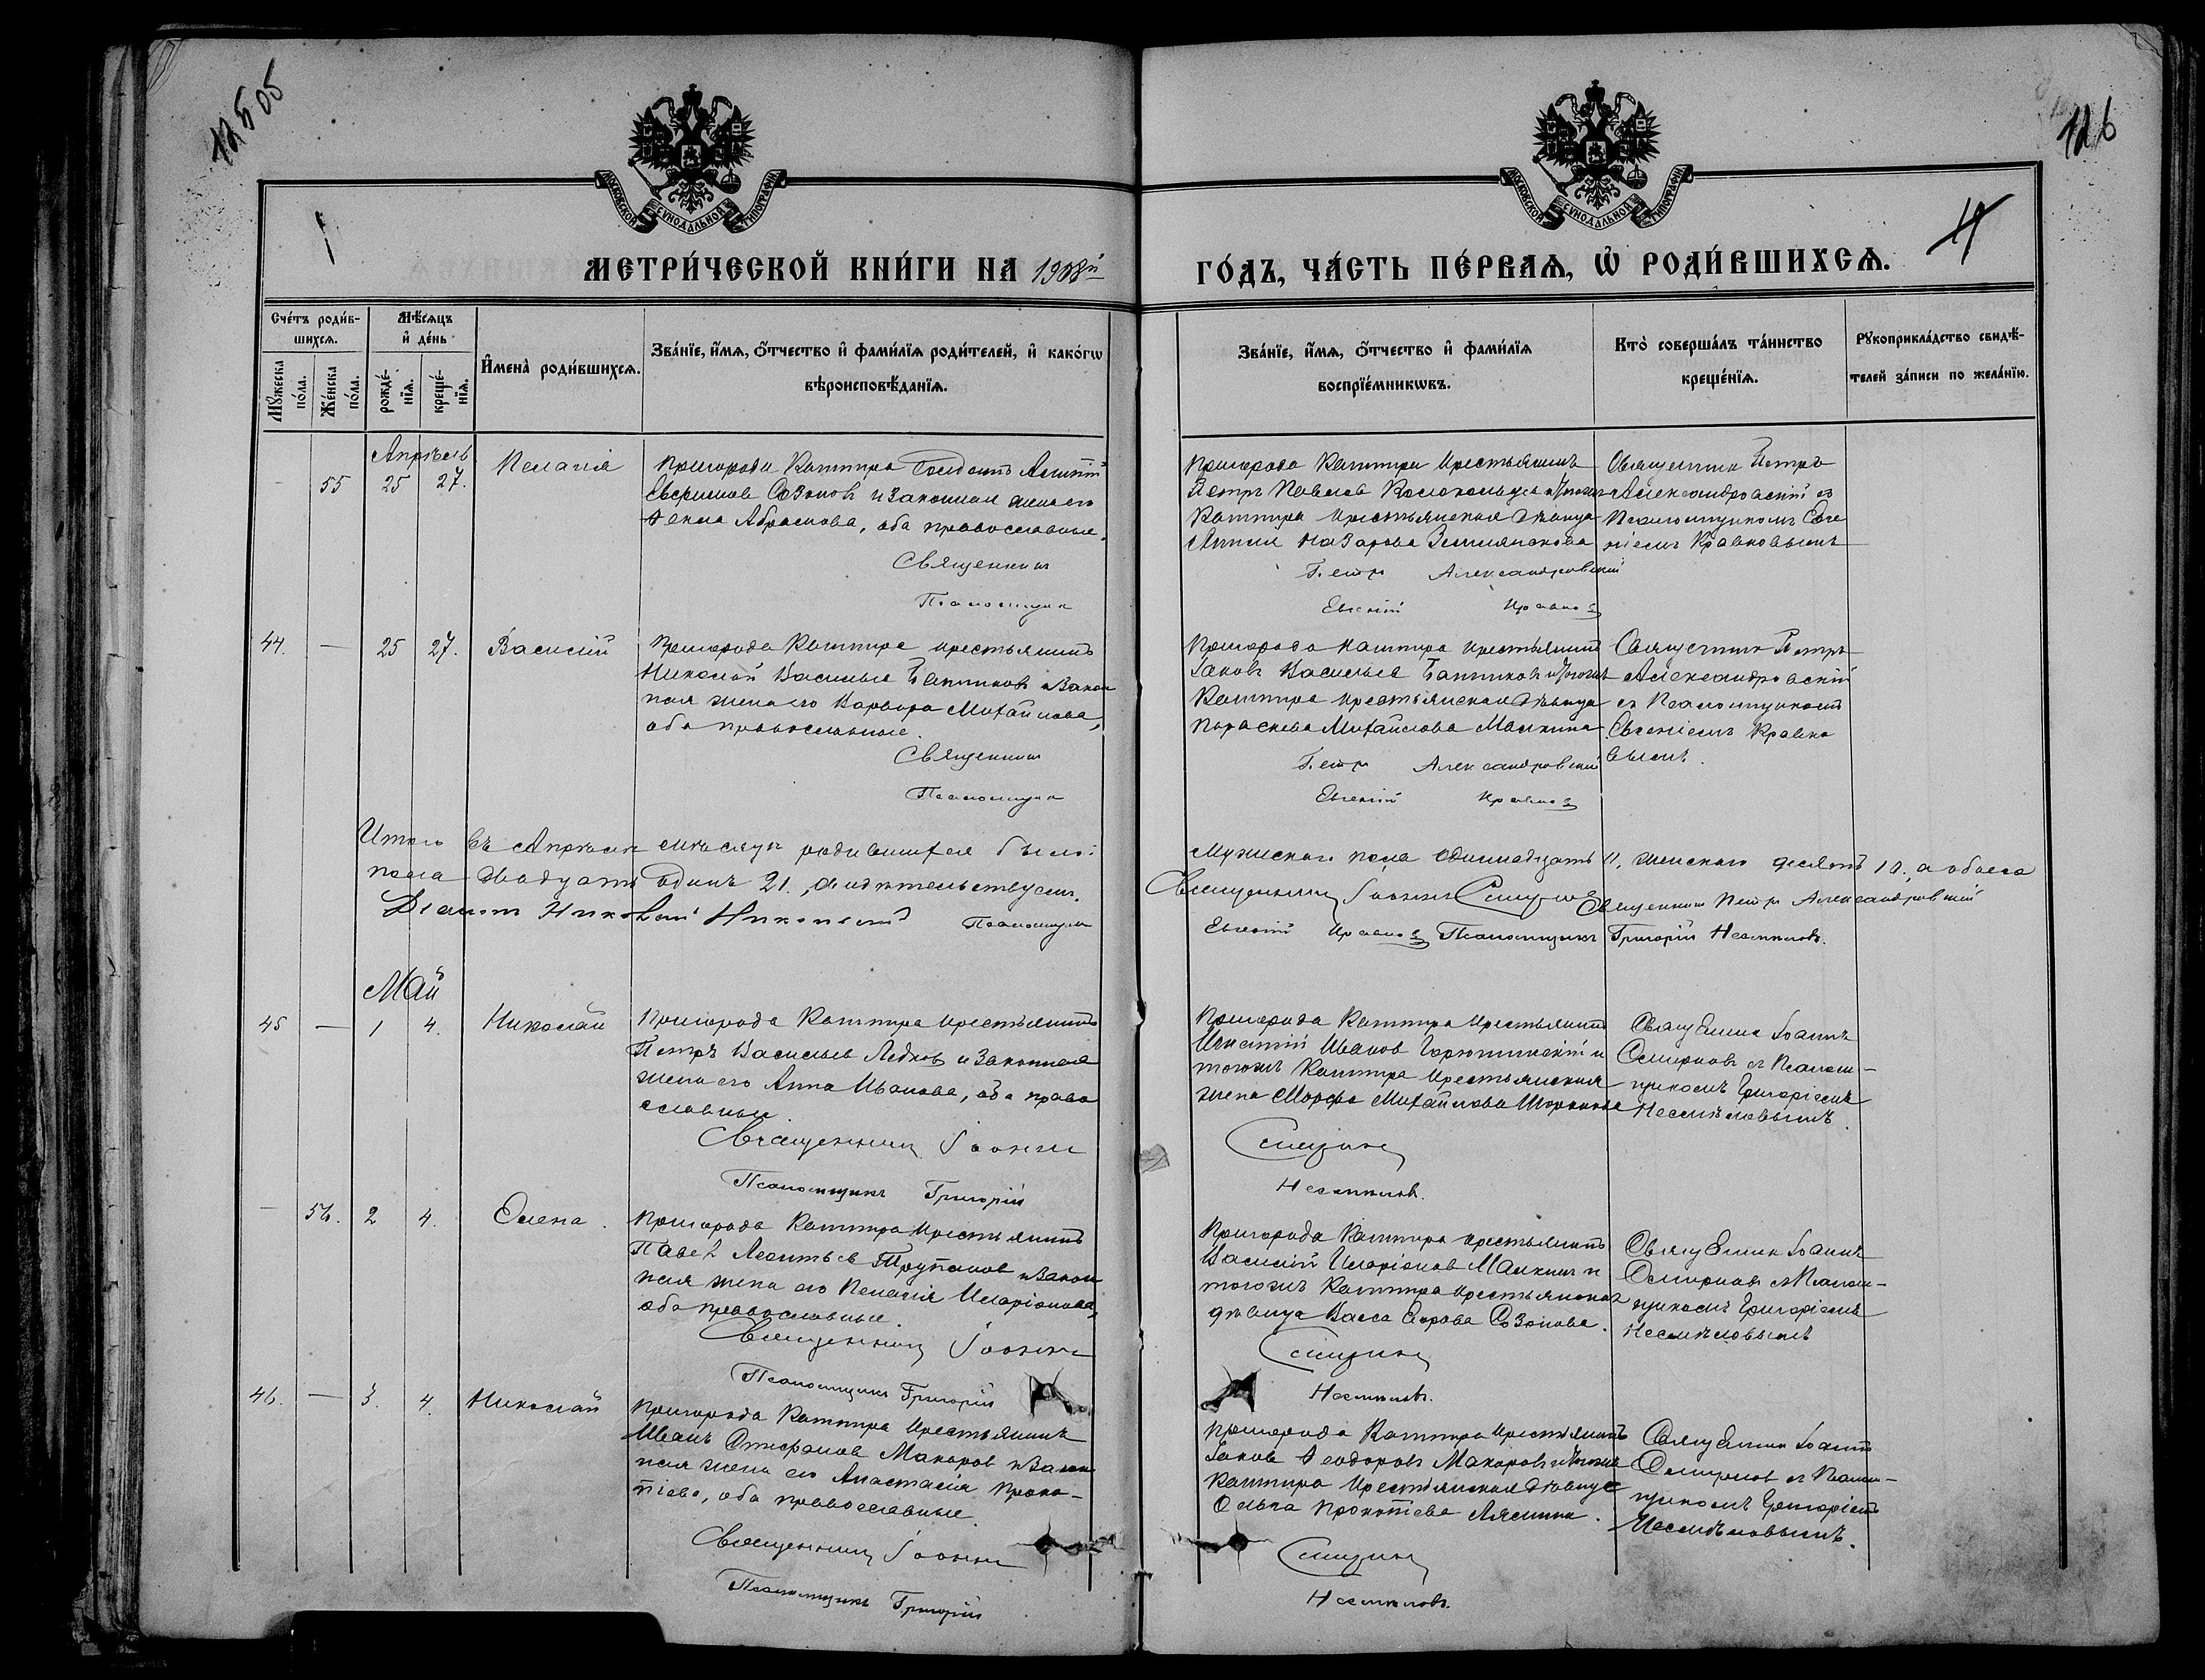 12505
126
МОСКОВСКОЙ СУНОДАЛЬНОЙ ТИПОГРАФІИ
МОСКОВСКОЙ СУНОДАЛЬНОЙ ТИПОГРАФІИ
МЕТРИ́ЧЕСКОЙ КНИ́ГИ НА 1908й
ГО́ДЪ, ЧА́СТЬ ПЕ́РВАѦ, Ѡ҆ РОДИ́ВШИХСѦ.
Сче́тъ роди́в-
шихсѧ.
Мꙋ́жеска по́ла.
Же́нска по́ла.
Мѣ́сѧцъ
и҆ де́нь
рожде́-нїѧ.
креще́-нїѧ.
И҆мена̀ роди́вшихсѧ.
Зва́нїе, и҆́мѧ, ѻ҆́тчество и҆ фами́лїѧ роди́телей, и҆ како́гѡ
вѣроисповѣ́данїѧ.
Зва́нїе, и҆́мѧ, ѻ҆́тчество и҆ фами́лїѧ
воспрїе́мникѡвъ.
Кто̀ соверша́лъ та́инство
креще́нїѧ.
Рꙋкоприкла́дство свидѣ́-
телей за́писи по жела́нїю.
Апрѣль
55 25 27. Пелагія
Пригорода Каттира Солдатъ
Созоновъ и законная жена его
Ѳекла Абрамова, оба православные.
Священникъ
Псаломщикъ
Пригорода Каттира крестьянинъ
Петръ Павловъ
Каттира крестьянская дѣвица
Назарова
Петръ Александровскій
Евгеній
Священникъ Петръ
Александровскій съ
Псаломщикомъ Евге
ніемъ
44. — 25 27. Василій
Пригорода Каттира крестьянинъ
Николай Васильевъ и закон
ная жена его Варвара Михайлова,
оба православные.
Священникъ
Псаломщикъ
Пригорода Каттира крестьянинъ
Іаковъ Васильевъ
Каттира крестьянская дѣвица
Параскева Михайлова Малкина
Петръ Александровскій
Евгеній
Священникъ Петръ
Александровскій
съ Псаломщикомъ
Евгеніемъ
Итого въ Апрѣлѣ мѣсяцѣ родившихся было:
мужескаго пола одиннадцать 11, женскаго десять 10, а обоего
пола двадцать одинъ 21. Свидѣтельствуемъ.
Священникъ Іоаннъ Смирновъ Священникъ Петръ Александровскій
Діаконъ Николай Никольскій Псаломщикъ
Евгеній Псаломщикъ Григорій Несмѣловъ.
Май
45 — 1 4. Николай
Пригорода Каттира крестьянинъ
Петръ Васильевъ Ледковъ и законная
жена его Анна Иванова, оба право
славные.
Священникъ Іоаннъ
Псаломщикъ Григорій
Пригорода Каттира крестьянинъ
Игнатій Ивановъ и
тогожъ Каттира крестьянская
жена Марфа Михайлова
Смирновъ
Несмѣловъ.
Священникъ Іоаннъ
Смирновъ съ Псалом-
щикомъ Григоріемъ
Несмѣловымъ.
— 56. 2 4. Елена.
Пригорода Каттира крестьянинъ
Павелъ Леонтьевъ и закон
ная жена его Пелагія Иларіонова,
оба православные.
Священникъ Іоаннъ
Псаломщикъ Григорій
Пригорода Каттира крестьянинъ
Василій Иларіоновъ Малкинъ и
тогожъ Каттира крестьянская
дѣвица Васса Егорова Созонова.
Смирновъ
Несмѣловъ.
Священникъ Іоаннъ
Смирновъ съ Псалом-
щикомъ Григоріемъ
Несмѣловымъ
46. — 3. 4. Николай
Пригорода Каттира крестьянинъ
Иванъ Стефановъ Макаровъ и закон
ная жена его Анастасія Проко-
піева, оба православные.
Священникъ Іоаннъ
Псаломщикъ Григорій
Пригорода Каттира крестьянинъ
Іаковъ Ѳеодоровъ Макаровъ и тогожъ
Каттира крестьянская дѣвица
Ольга Прокопіева Лямина.
Смирновъ
Несмѣловъ.
Священникъ Іоаннъ
Смирновъ съ Псалом-
щикомъ Григоріемъ
Несмѣловымъ.